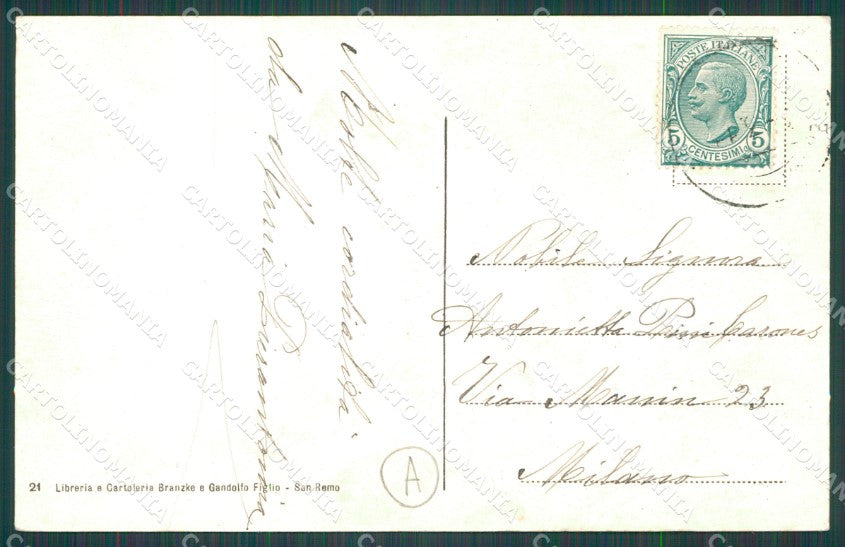 Molte cordialità
da Maria
POSTE ITALIANE
5 CENTESIMI 5
Nobile Signora
Antonietta
Via Manin 23
Milano
A
21 Libreria e Cartoleria Branzke e Gandolfo Figlio - San Remo
CARTOLINOMANIA